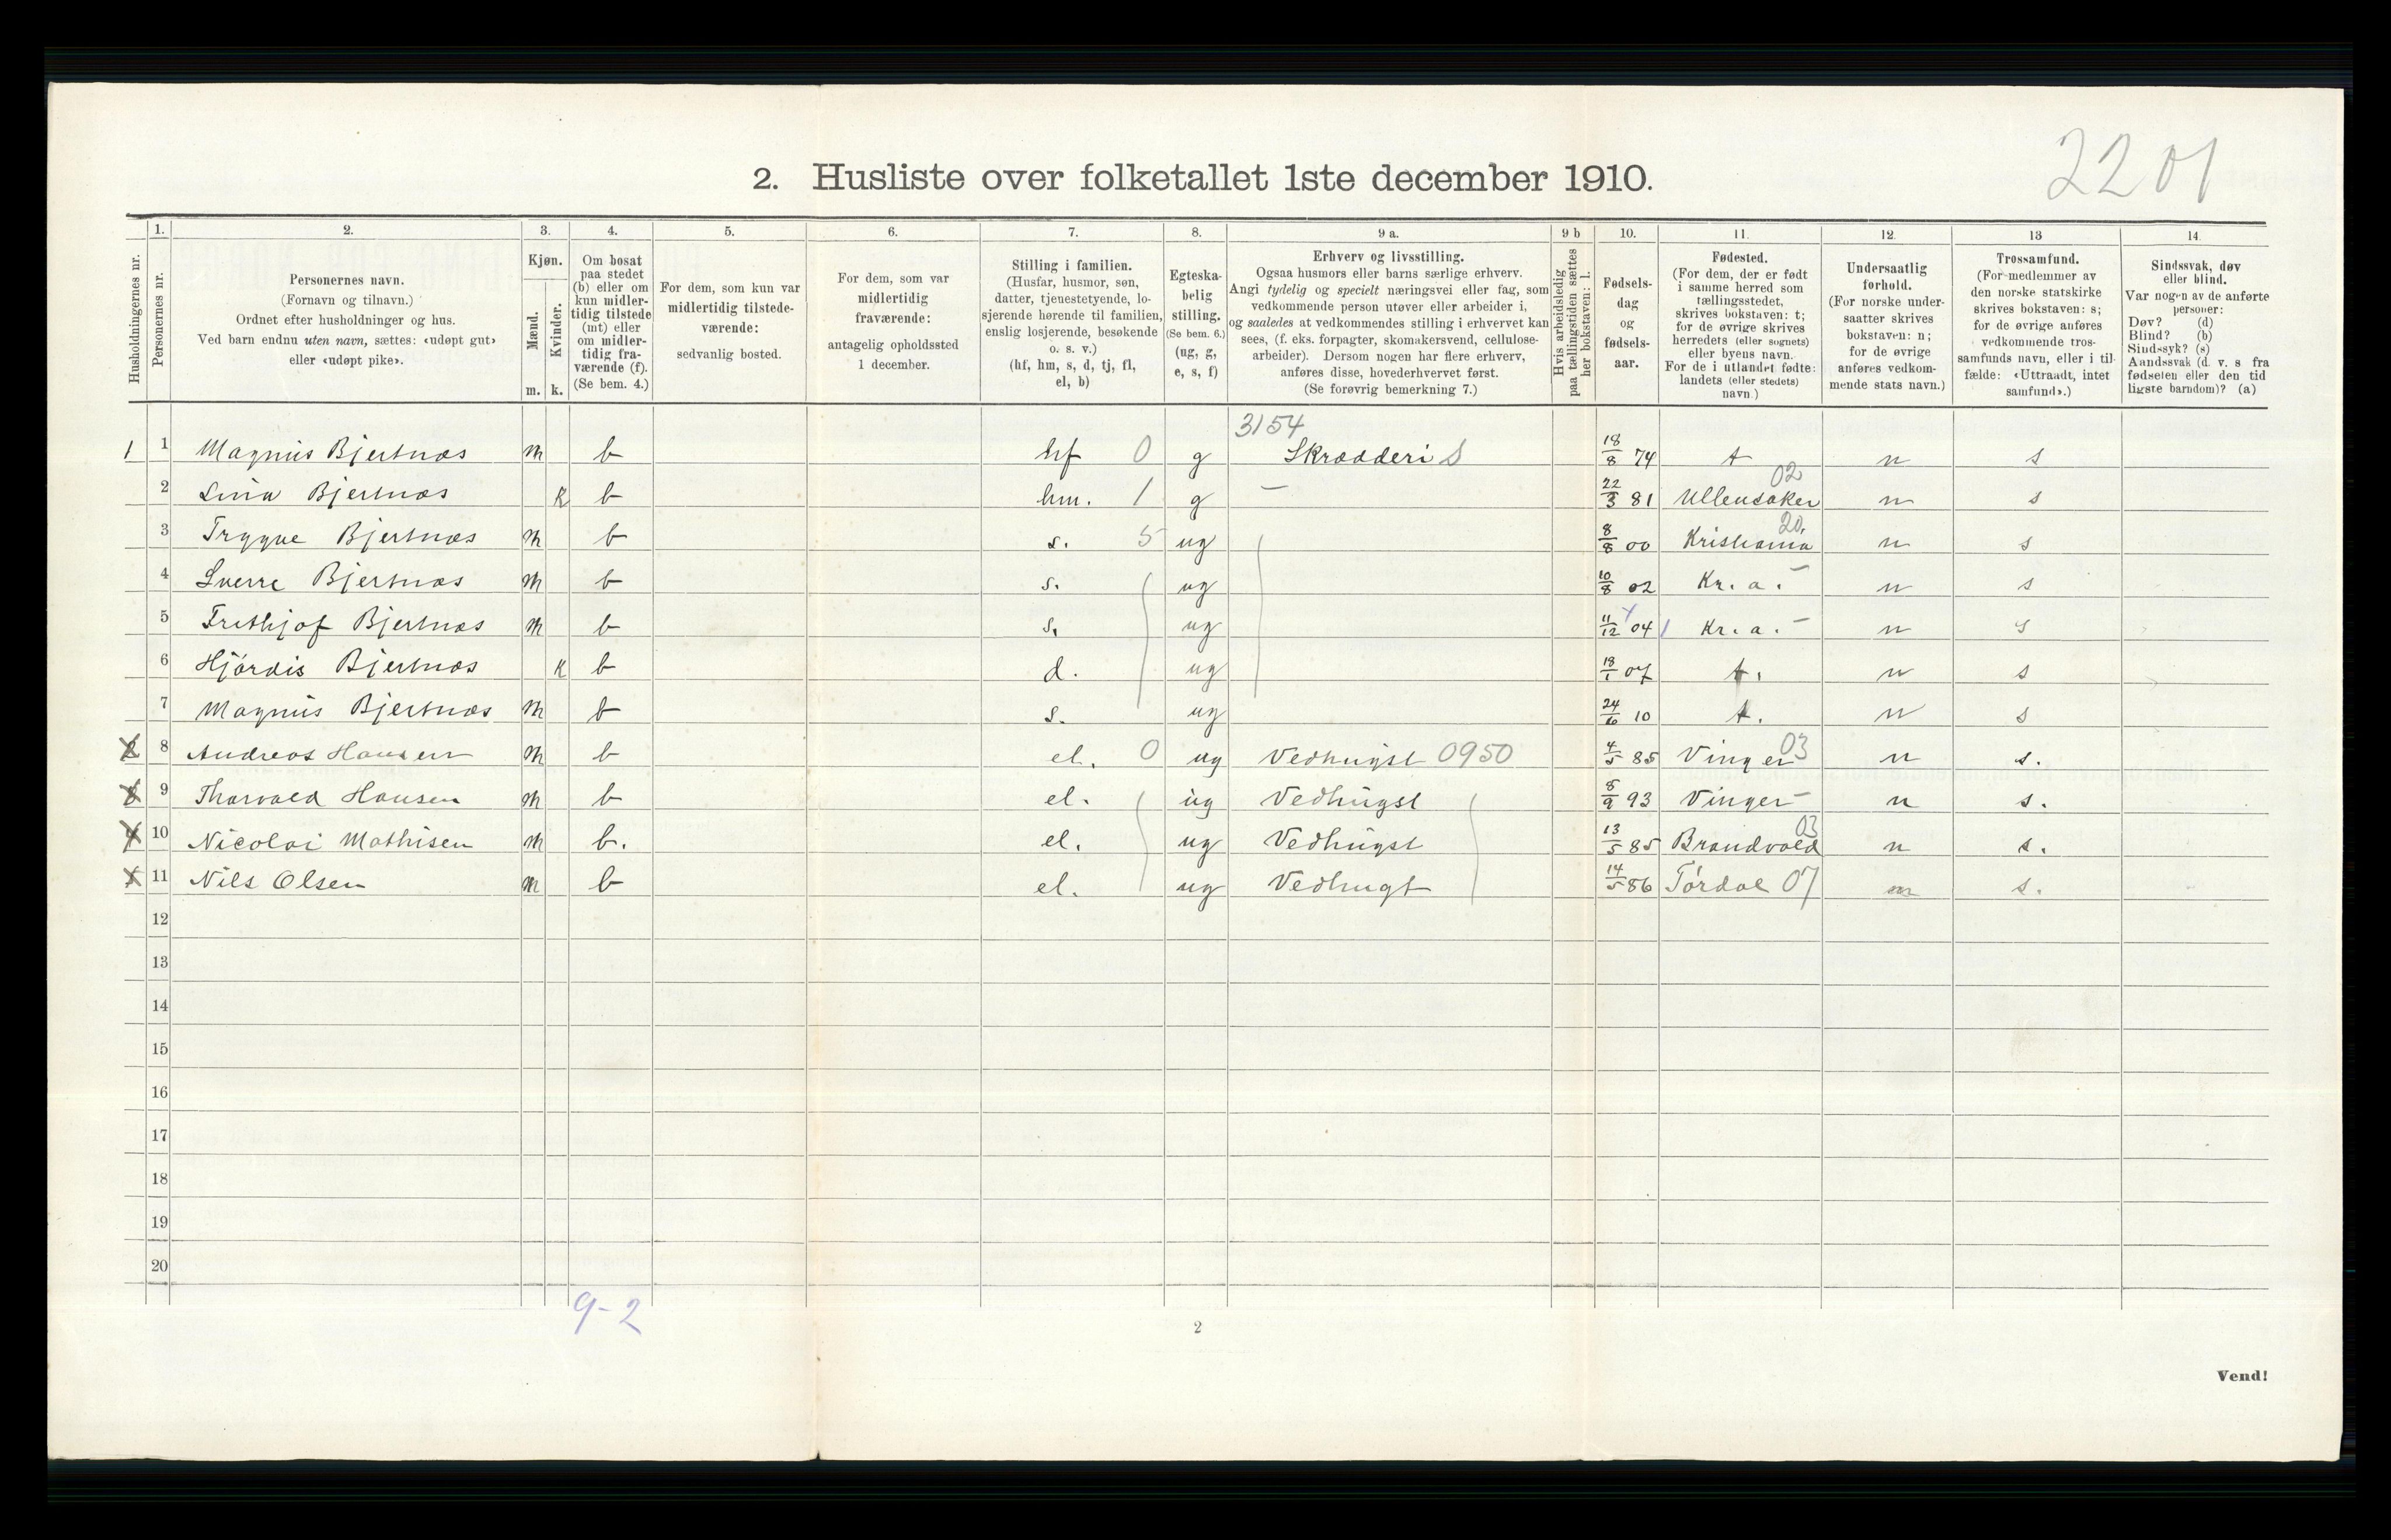 2201
2. Husliste over folketallet 1ste december 1910.
Husholdningernes nr.
1. Personernes nr.
2. Personernes navn.
(Fornavn og tilnavn.)
Ordnet efter husholdninger og hus.
Ved barn endnu uten navn, sættes: «udøpt gut»
eller «udøpt pike».
3. Kjøn.
Mænd. m.
Kvinder. k.
4. Om bosat
paa stedet
(b) eller om
kun midler-
tidig tilstede
(mt) eller
om midler-
tidig fra-
værende (f).
(Se bem. 4.)
5. For dem, som kun var
midlertidig tilstede-
værende:
sedvanlig bosted.
6. For dem, som var
midlertidig
fraværende:
antagelig opholdssted
1 december.
7. Stilling i familien.
(Husfar, husmor, søn,
datter, tjenestetyende, lo-
sjerende hørende til familien,
enslig losjerende, besøkende
o. s. v.)
(hf, hm, s, d, tj, fl,
el, b)
8. Egteska-
belig
stilling.
(Se bem. 6.)
(ug, g,
e, s, f)
9 a. Erhverv og livsstilling.
Ogsaa husmors eller barns særlige erhverv.
Angi tydelig og specielt næringsvei eller fag, som
vedkommende person utøver eller arbeider i,
og saaledes at vedkommendes stilling i erhvervet kan
sees, (f. eks. forpagter, skomakersvend, cellulose-
arbeider). Dersom nogen har flere erhverv,
anføres disse, hovederhvervet først.
(Se forøvrig bemerkning 7.)
9 b Hvis arbeidsledig
paa tællingstiden sættes
her bokstaven: l.
10. Fødsels-
dag
og
fødsels-
aar.
11. Fødested.
(For dem, der er født
i samme herred som
tællingsstedet,
skrives bokstaven: t;
for de øvrige skrives
herredets (eller sognets)
eller byens navn.
For de i utlandet fødte:
landets (eller stedets)
navn.)
12. Undersaatlig
forhold.
(For norske under-
saatter skrives
bokstaven: n;
for de øvrige
anføres vedkom-
mende stats navn.)
13 Trossamfund.
(For medlemmer av
den norske statskirke
skrives bokstaven: s;
for de øvrige anføres
vedkommende tros-
samfunds navn, eller i til-
fælde: «Uttraadt, intet
samfund».)
14. Sindssvak, døv
eller blind.
Var nogen av de anførte
personer:
Døv? (d)
Blind? (b)
Sindssyk? (s)
Aandssvak (d. v. s fra
fødselen eller den tid-
ligste barndom)? (a)
3154
1 1 Magnus Bjertnæs m b hf 0 g Skrædderi S 18/8 74 t n s
02
2 Lina Bjertnæs k b hm. 1 g — 22/3 81 Ullensaker n s
20.
3 Trygve Bjertnæs m b s. 5 ug 8/8 00 Kristiania n s
4 Sverre Bjertnæs m b s. ug 10/8 02 Kr. a. – n s
5 Frithjof Bjertnæs m b s. ug 11/12 04 Kr. a. – n s
6 Hjördis Bjertnæs k b d. ug 18/1 07 t. n s
7 Magnus Bjertnæs m b s. ug 24/6 10 t. n s
2 8 Andreas Hansen m b el. 0 ug Vedhugst 0950 4/5 85 Vinger 03 n s.
3 9 Thorvald Hansen m b el. ug Vedhugst 8/9 93 Vinger – n s.
03
4 10 Nicolai Mathisen m b. el. ug Vedhugst 13/5 85 Brandvold n s.
11 Nils Olsen m b el. ug Vedhugt 14/5 86 Tördal 07 n s.
12
13
14
15
16
17
18
19
20
9-2
2
Vend!